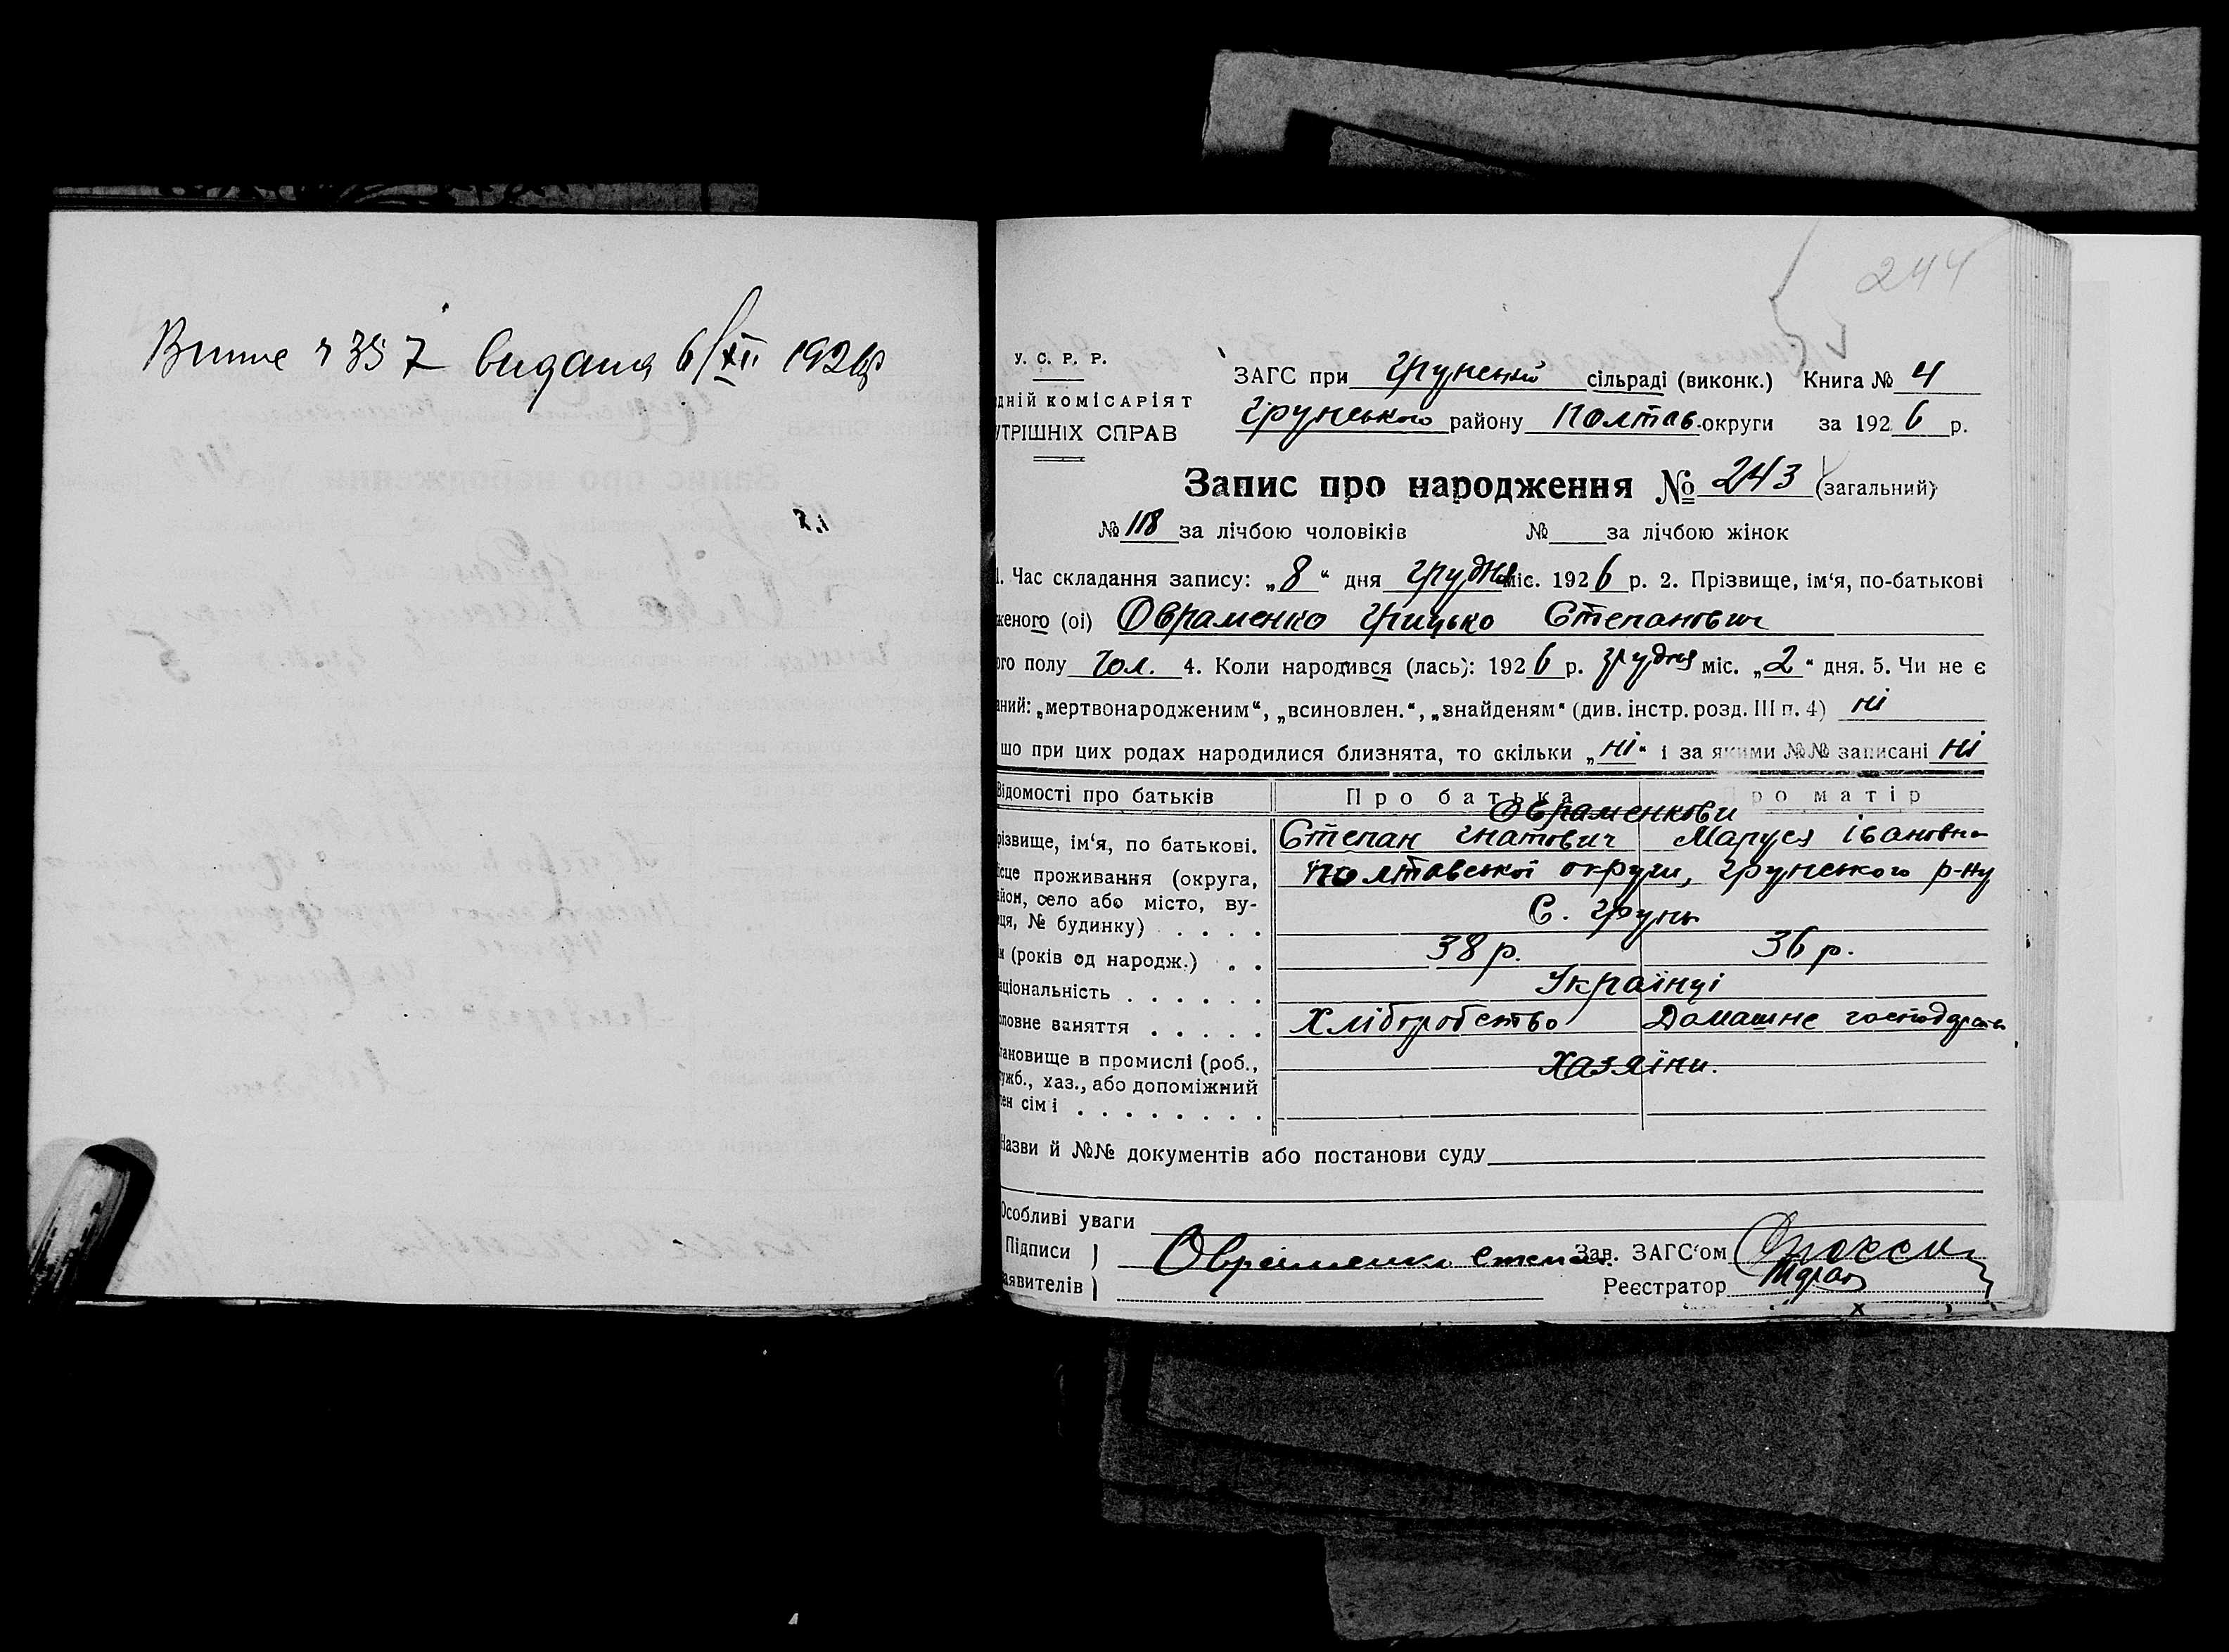 видана 6/XII 1926р
244
У. С. Р. Р.
дній комісаріят
утрішніх справ
ЗАГС при Грунській сільраді (виконк.) Книга № 4
Грунського району Полтав. округи за 1926 р.
Запис про народження № 243 (загальний)
№ 118 за лічбою чоловіків № за лічбою жінок
1. Час складання запису: „8“ дня грудня міс. 1926 р. 2. Прізвище, ім‘я, по-батькові
женого (ої) Овраменко Грицько Степанович
ого полу Чол. 4. Коли народився (лась): 1926 р. грудня міс. „2“ дня. 5. Чи не є
аний: „мертвонародженим“, „всиновлен.“, „знайденям“ (див. інстр. розд. III п. 4) ні
що при цих родах народилися близнята, то скільки „ні“ і за якими №№ записані ні
Відомості про батьків Про батька Про матір
Овраменкови
різвище, ім‘я, по батькові. Степан Гнатович Маруся Івановна
ісце проживання (округа, Полтавської округи, Грунського р-ну
йон, село або місто, ву-
ця, № будинку) . . . . С. Грунь
и (років од народж.) . . 38 р. 36 р.
аціональність . . . . . . Українці
ловне заняття . . . . . Хліборобство Домашне господарство
тановище в промислі (роб., Хазяїни.
ужб., хаз., або допоміжний
ен сімі . . . . . . . .
Назви й №№ документів або постанови суду
Особливі уваги
Підписи Овраменко Степан Зав. ЗАГС‘ом
аявителів Реєстратор